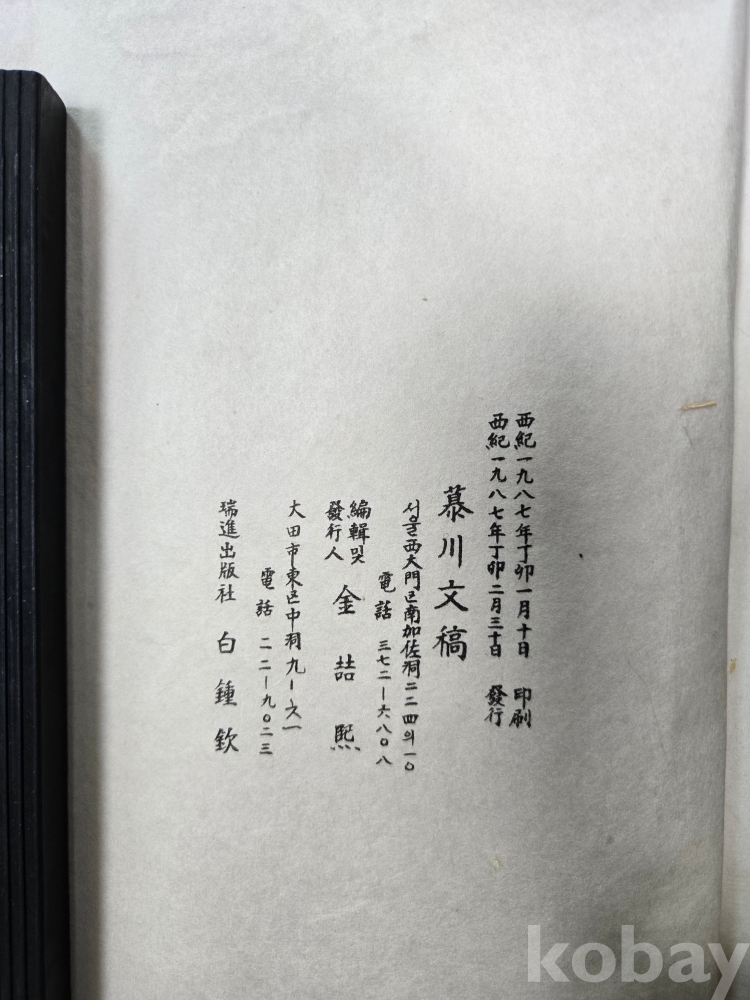 西紀一九八七年丁卯一月十日 印刷
西紀一九八七年丁卯二月三十日 發行
慕川文稿
서울西大門区南加佐洞二二四의一〇
電話 三七二ー六八〇八
編輯및
發行人 金喆熙
大田市東区中洞九ー
電話 二二ー九〇二三
瑞進出版社 白鍾欽
kobay